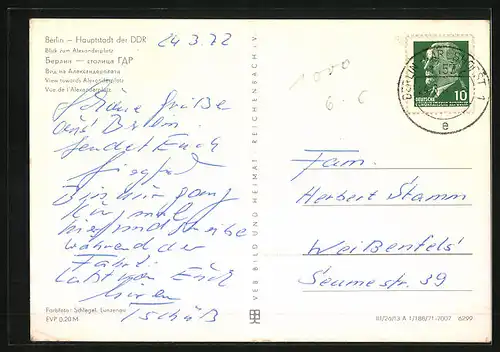 Berlin – Hauptstadt der DDR
Blick zum Alexanderplatz
Берлин – столица ГДР
Вид на Александерплатц
View towards Alexanderplatz
Vue de l'Alexanderplatz
24 3. 72
Schöne Grüße
aus Berlin
sendet Euch
Bin nur ganz
kurz mal
hier und schreibe
während der
Fahrt.
Laßt von Euch
hören
Tschüß
Farbfoto: Schlegel, Lunzenau
EVP 0,20 M
VEB BILD UND HEIMAT REICHENBACH i. V.
1000
6. 6
BERLIN
1
e
DEUTSCHE
DEMOKRATISCHE REPUBLIK
10
Fam.
Herbert Stamm
Weißenfels
Seumestr. 39
III/26/13 A 1/188/71-7007 6299